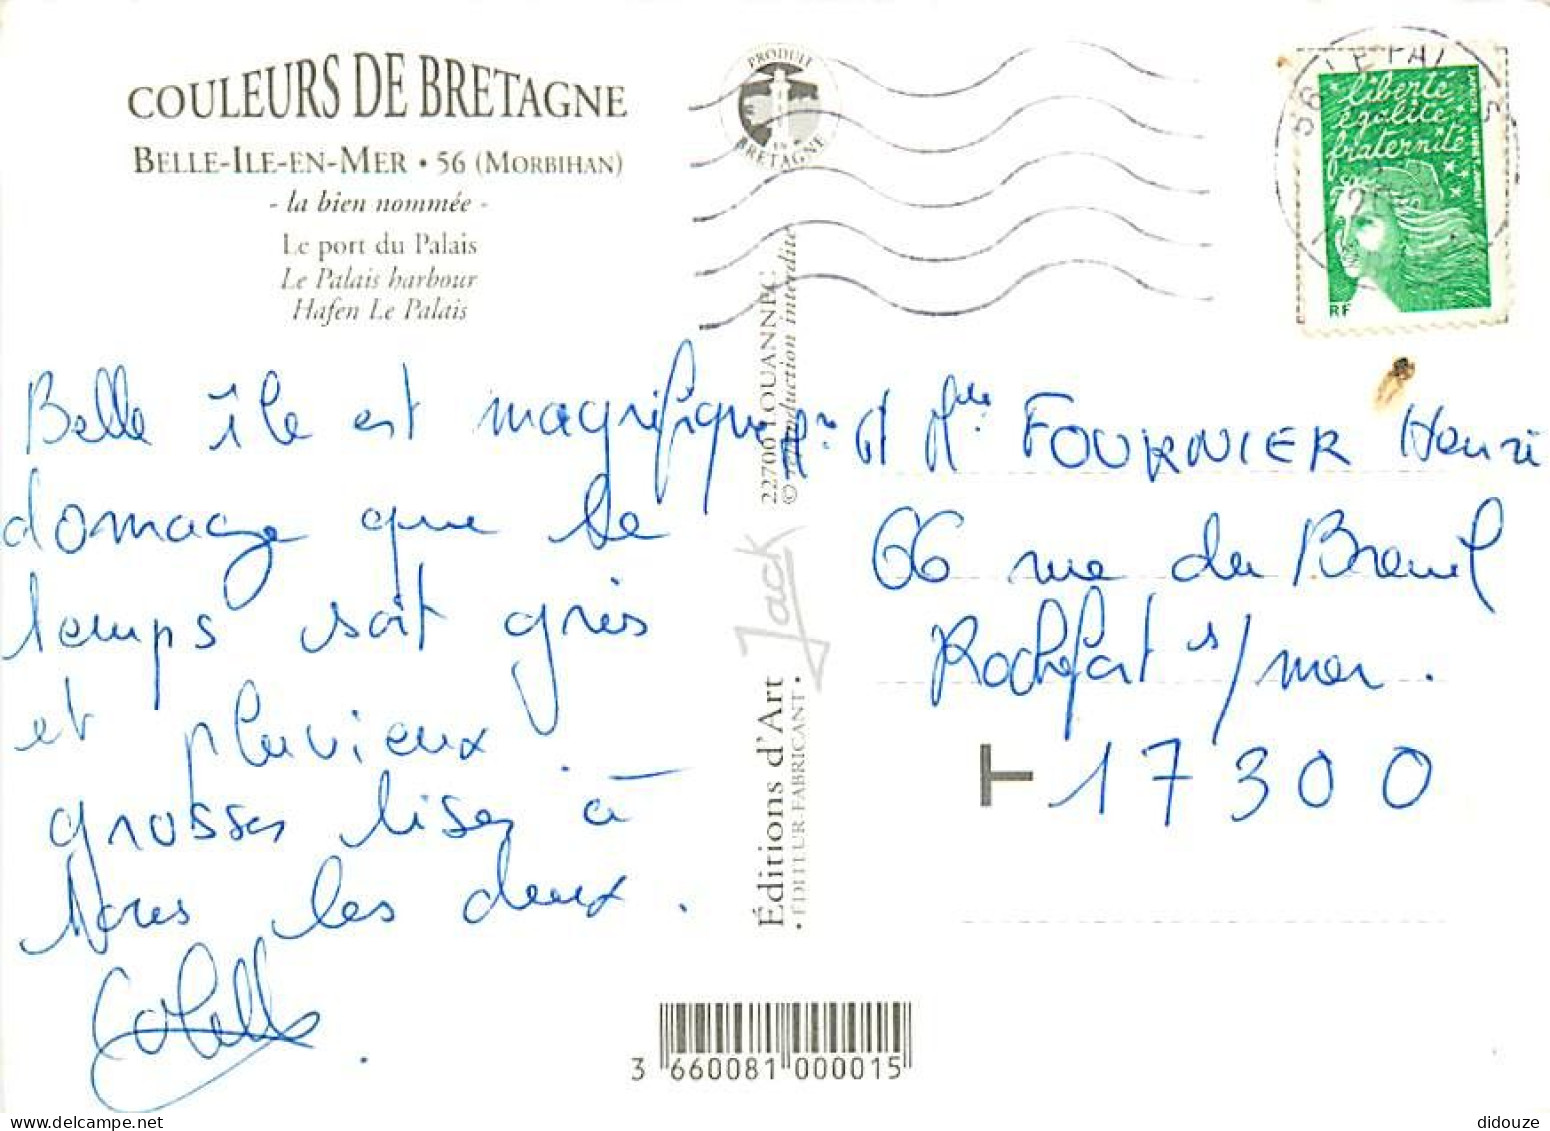 COULEURS DE BRETAGNE
BELLE-ILE-EN-MER • 56 (MORBIHAN)
- la bien nommée -
Le port du Palais
Le Palais harbour
Hafen Le Palais
PRODUIT
EN
BRETAGNE
56 LE PALAIS
liberté
égalité
fraternité
RF
Belle île est magnifique
domage que le
temps soit gris
et pluvieux.
grosses bises à
vous les deux.
Colette
22700 LOUANNEC
© reproduction interdite
Jack
Éditions d'Art
• ÉDITEUR-FABRICANT •
Mr et Mme FOURNIER Henri
66 rue du Breuil
Rochefort s/mer.
T 17300
3 660081 000015
didouze